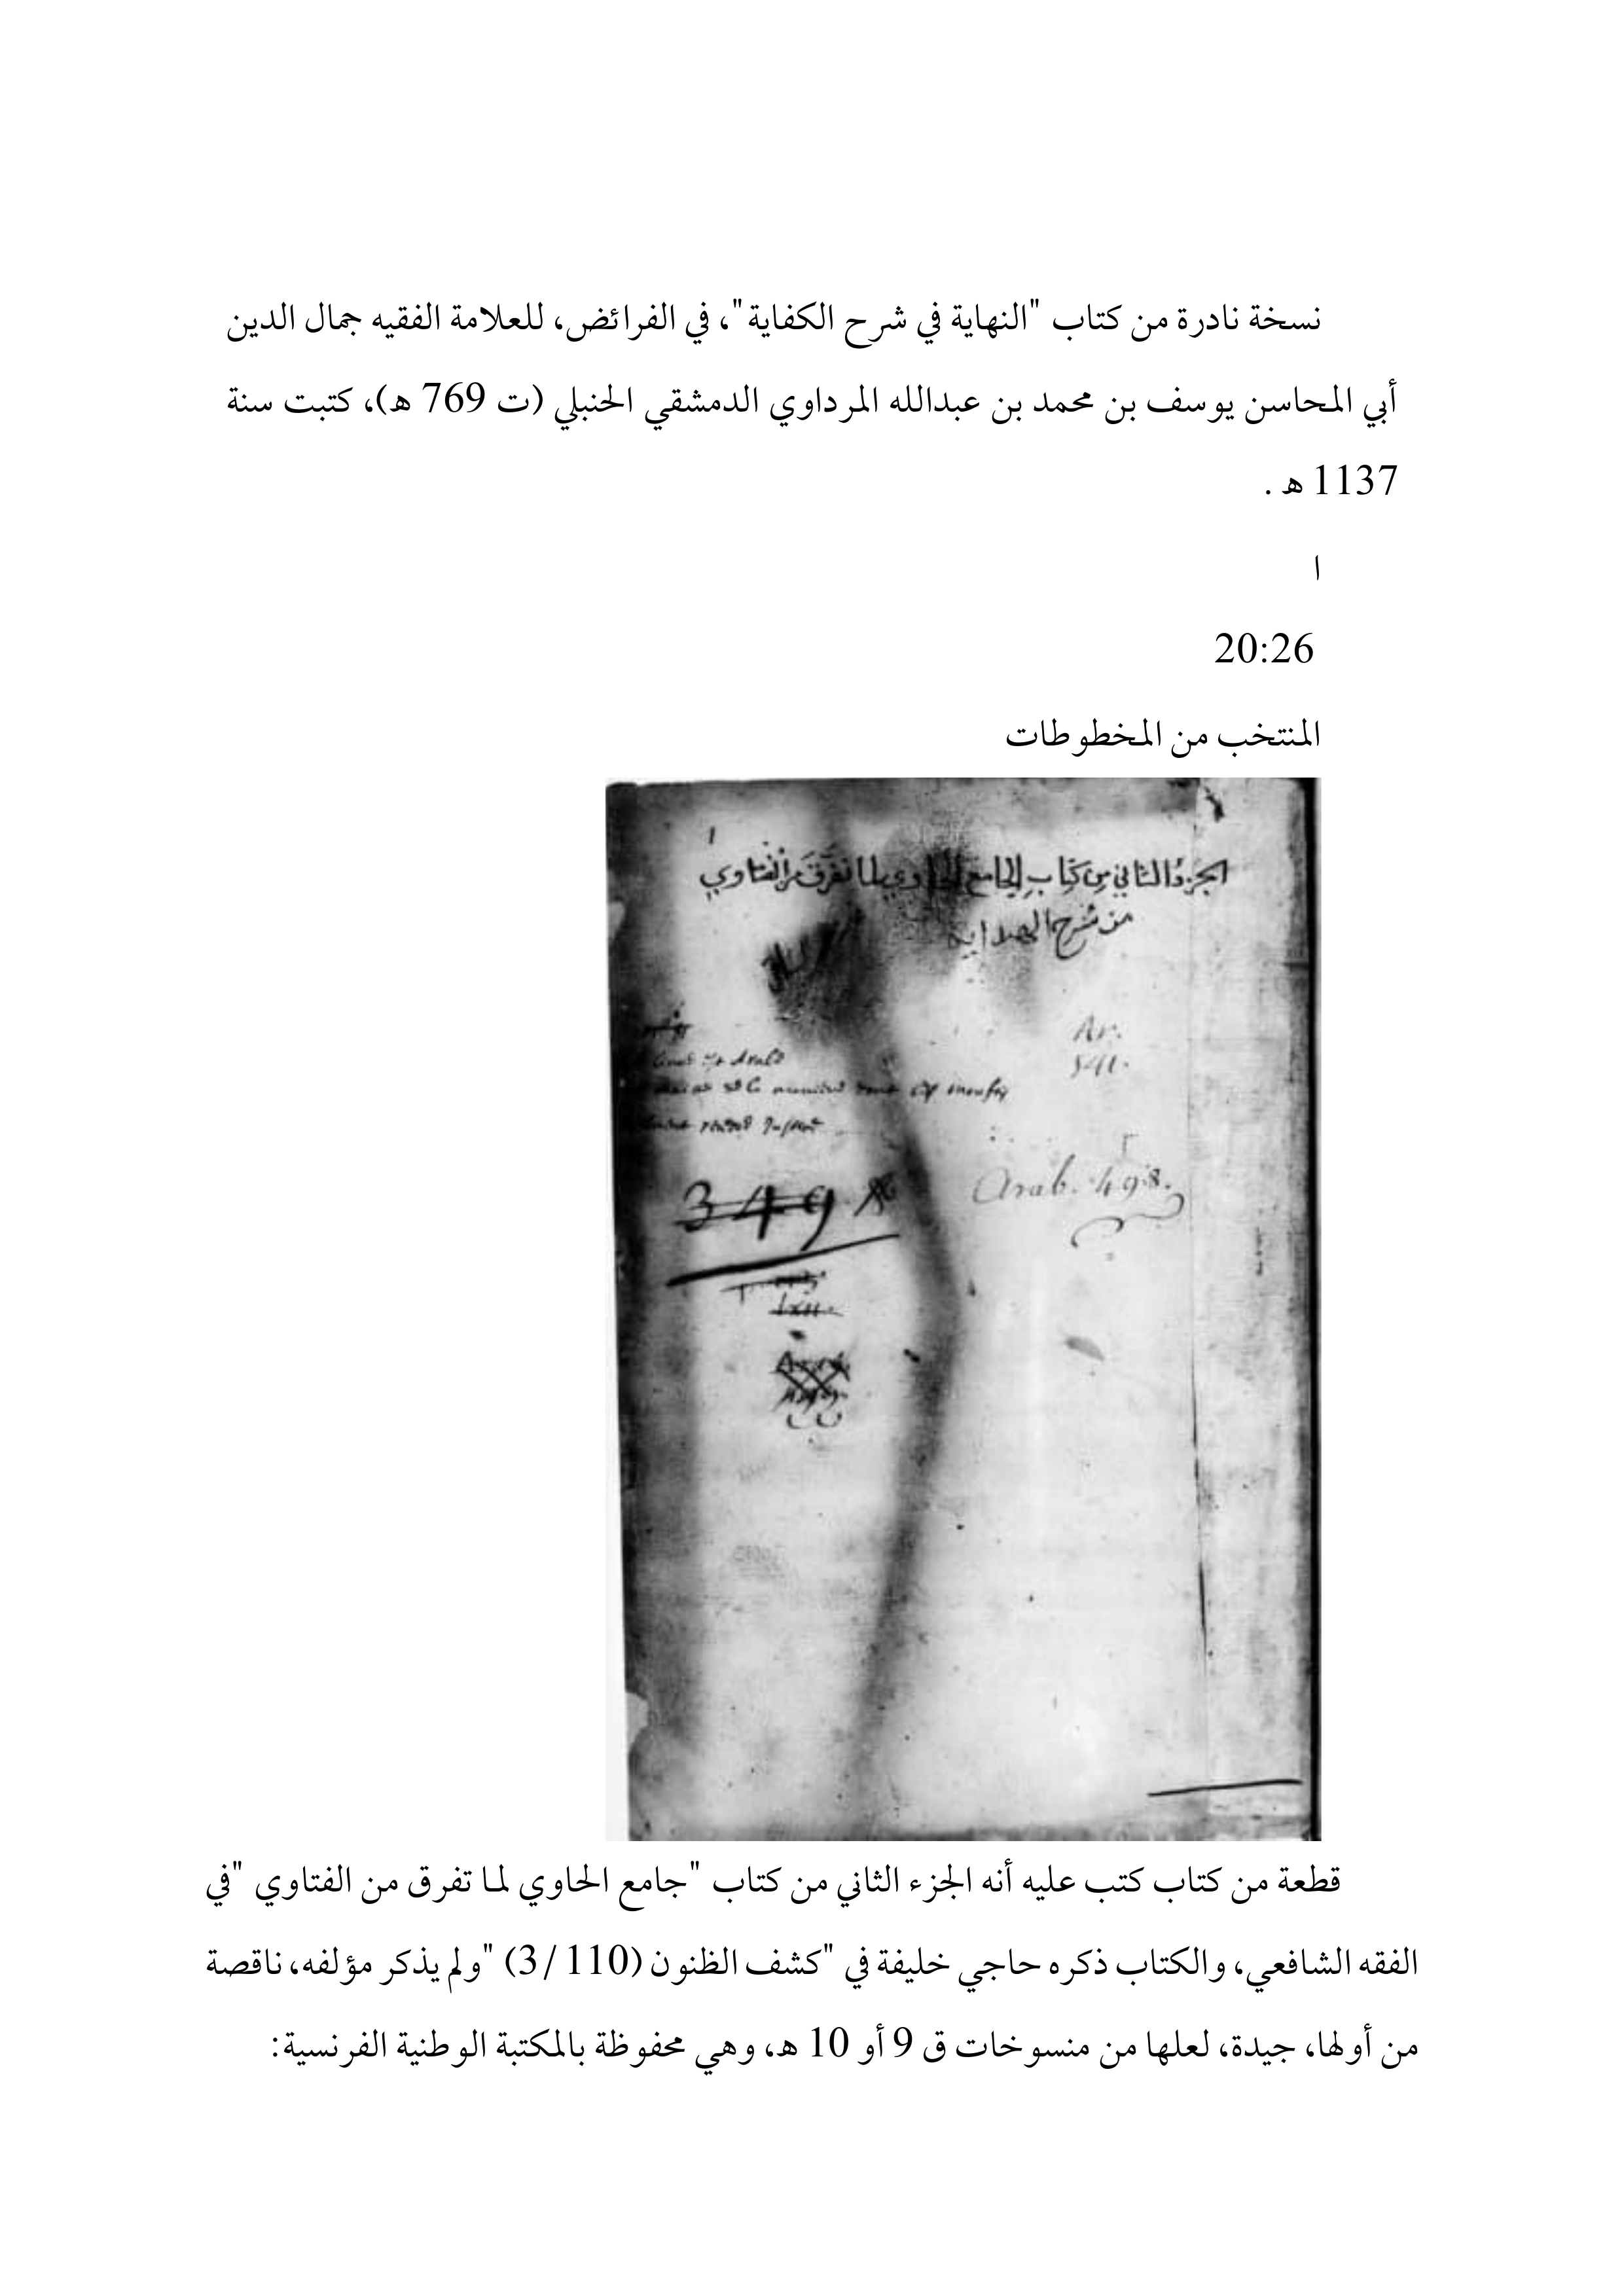 نسخة نادرة من كتاب "النهاية في شرح الكفاية"، في الفرائض، للعلامة الفقيه جمال الدين
أبي المحاسن يوسف بن محمد بن عبدالله المرداوي الدمشقي الحنبلي (ت 769 ه)، كتبت سنة
1137 ه .
ا
20:26
المنتخب من المخطوطات
١
الجزء الثاني من كتاب الجامع الحاوي لما تفرق من الفتاوي
من شرح الهداية
Ar.
Arab. 498.
349
قطعة من كتاب كتب عليه أنه الجزء الثاني من كتاب "جامع الحاوي لما تفرق من الفتاوي "في
الفقه الشافعي، والكتاب ذكره حاجي خليفة في "كشف الظنون (110 /3) "ولم يذكر مؤلفه، ناقصة
من أولها، جيدة، لعلها من منسوخات ق 9 أو 10 ه، وهي محفوظة بالمكتبة الوطنية الفرنسية: